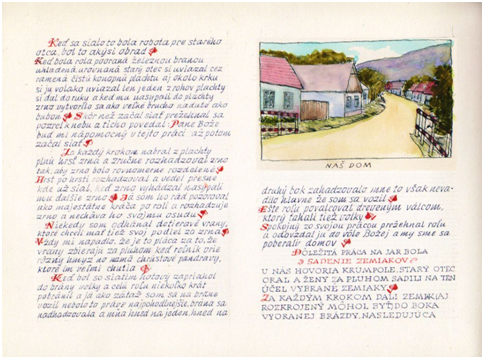 Keď sa sialo to bola robota pre starého
otca, bol to akýsi obrad
Keď bola roľa pooraná železnou bránou
uvláčená urovnaná starý otec si uviazal cez
ramená čistú konopnú plachtu aj okolo krku
si ju voľako uviazal len jeden z rohov plachty
si dal do ruky a keď mu nasypali do plachty
zrno vytvorilo sa ako veľké brucho nadute ako
bubon Skôr než začal siať prežehnal sa
pozrel k nebu a ticho povedal: Pane Bože
buď mi nápomocný v tejto práci až potom
začal siať
Za každý krokom nabral z plachty
plnú hrsť zrna a zručne rozhadzoval zrno
tak, aby zrno bolo rovnomerne rozdelené
Hrsť po hrsti rozhadzoval a vedel presne
kde už sial, keď zrno vyhádzal nasypali
mu ďalšie zrno Ja som ho rád pozoroval
ako majestátne kráča po roli a rozhadzuje
zrno a necháva ho svojmu osudu
Niekedy som odháňal dotieravé vrany,
ktoré chceli mať tiež svoj podiel zo zrna
Vždy mi napadlo, že je to pláca za to, že
vrany zbierajú za pluhom keď roľník orie
rôzny hmyz no najmä chrústové pandravy,
ktoré im veľmi chutia
Keď bolo siatim hotový zapriahol
do brány voly a celú roľu niekoľko krát
pobránil a ja ako záťaž som sa na bráne
vozil nebolo to práve najpohodlnejšie, brána sa
nadhadzovala a mňa hneď na jeden, hneď na
NÁŠ DOM
druhý bok zahadzovalo mne to však neva-
dilo hlavne že som sa vozil
Ešte roľu povalcoval dreveným valcom,
ktorý ťahali tiež volky
Spokojný zo svojou prácou prežehnal roľu
a odovzdal ju do vôle Božej a my sme sa
poberali domov
DÔLEŽITÁ PRÁCA NA JAR BOLA
SADENIE ZEMIAKOV
U NÁS HOVORIA KRUMPOLE. STARÝ OTEC
ORAL A ŽENY ZA PLUHOM SADILI NA TEN
ÚČEL VYBRANÉ ZEMIAKY
ZA KAŽDÝM KROKOM DALI ZEMIAK AJ
ROZKROJENÝ MOHOL BYŤ DO BOKA
VYORANEJ BRÁZDY, NASLEDUJÚCA